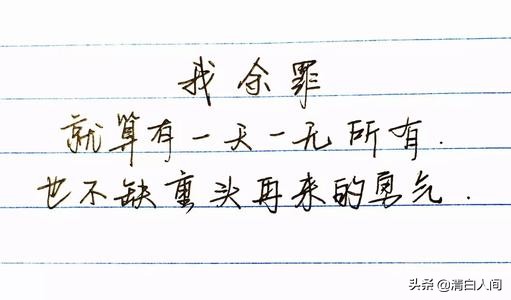 我余罪
就算有一天一无所有.
也不缺重头再来的勇气.
头条@清白人间